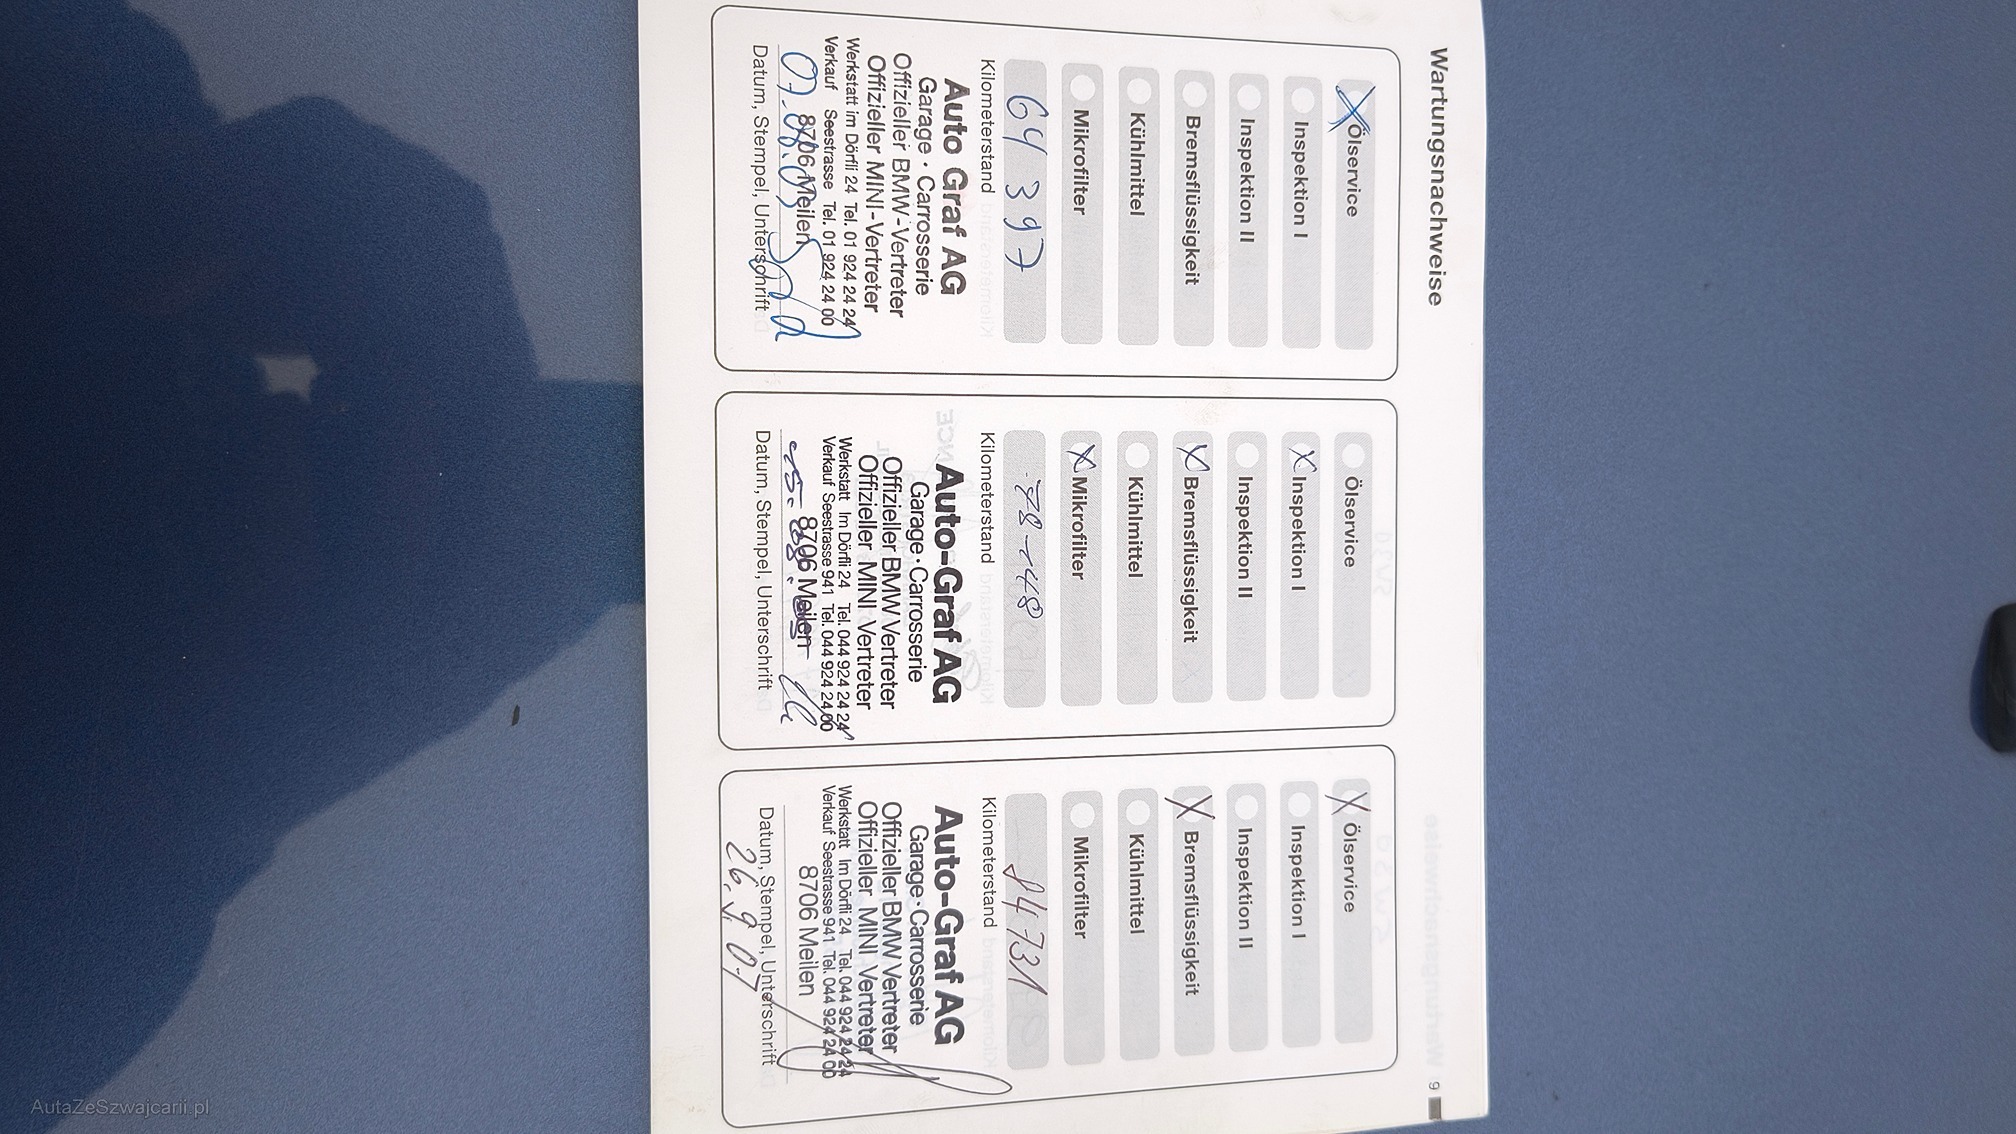 Wartungsnachweise
Ölservice
Inspektion I
Inspektion II
Bremsflüssigkeit
Kühlmittel
Mikrofilter
64397
Kilometerstand
Auto Graf AG
Garage · Carrosserie
Offizieller BMW-Vertreter
Offizieller MINI-Vertreter
Werkstatt im Dörfli 24 Tel. 01 924 24 24
Verkauf Seestrasse Tel. 01 924 24 00
8706 Meilen
Datum, Stempel, Unterschrift
Ölservice
Inspektion I
Inspektion II
Bremsflüssigkeit
Kühlmittel
Mikrofilter
Kilometerstand
Auto-Graf AG
Garage · Carrosserie
Offizieller BMW Vertreter
Offizieller MINI Vertreter
Werkstatt Im Dörfli 24 Tel. 044 924 24 24
Verkauf Seestrasse 941 Tel. 044 924 24 00
8706 Meilen
Datum, Stempel, Unterschrift
Ölservice
Inspektion I
Inspektion II
Bremsflüssigkeit
Kühlmittel
Mikrofilter
84731
Kilometerstand
Auto-Graf AG
Garage · Carrosserie
Offizieller BMW Vertreter
Offizieller MINI Vertreter
Werkstatt Im Dörfli 24 Tel. 044 924 24 24
Verkauf Seestrasse 941 Tel. 044 924 24 00
8706 Meilen
Datum, Stempel, Unterschrift
26.9.07
9
AutaZeSzwajcarii.pl